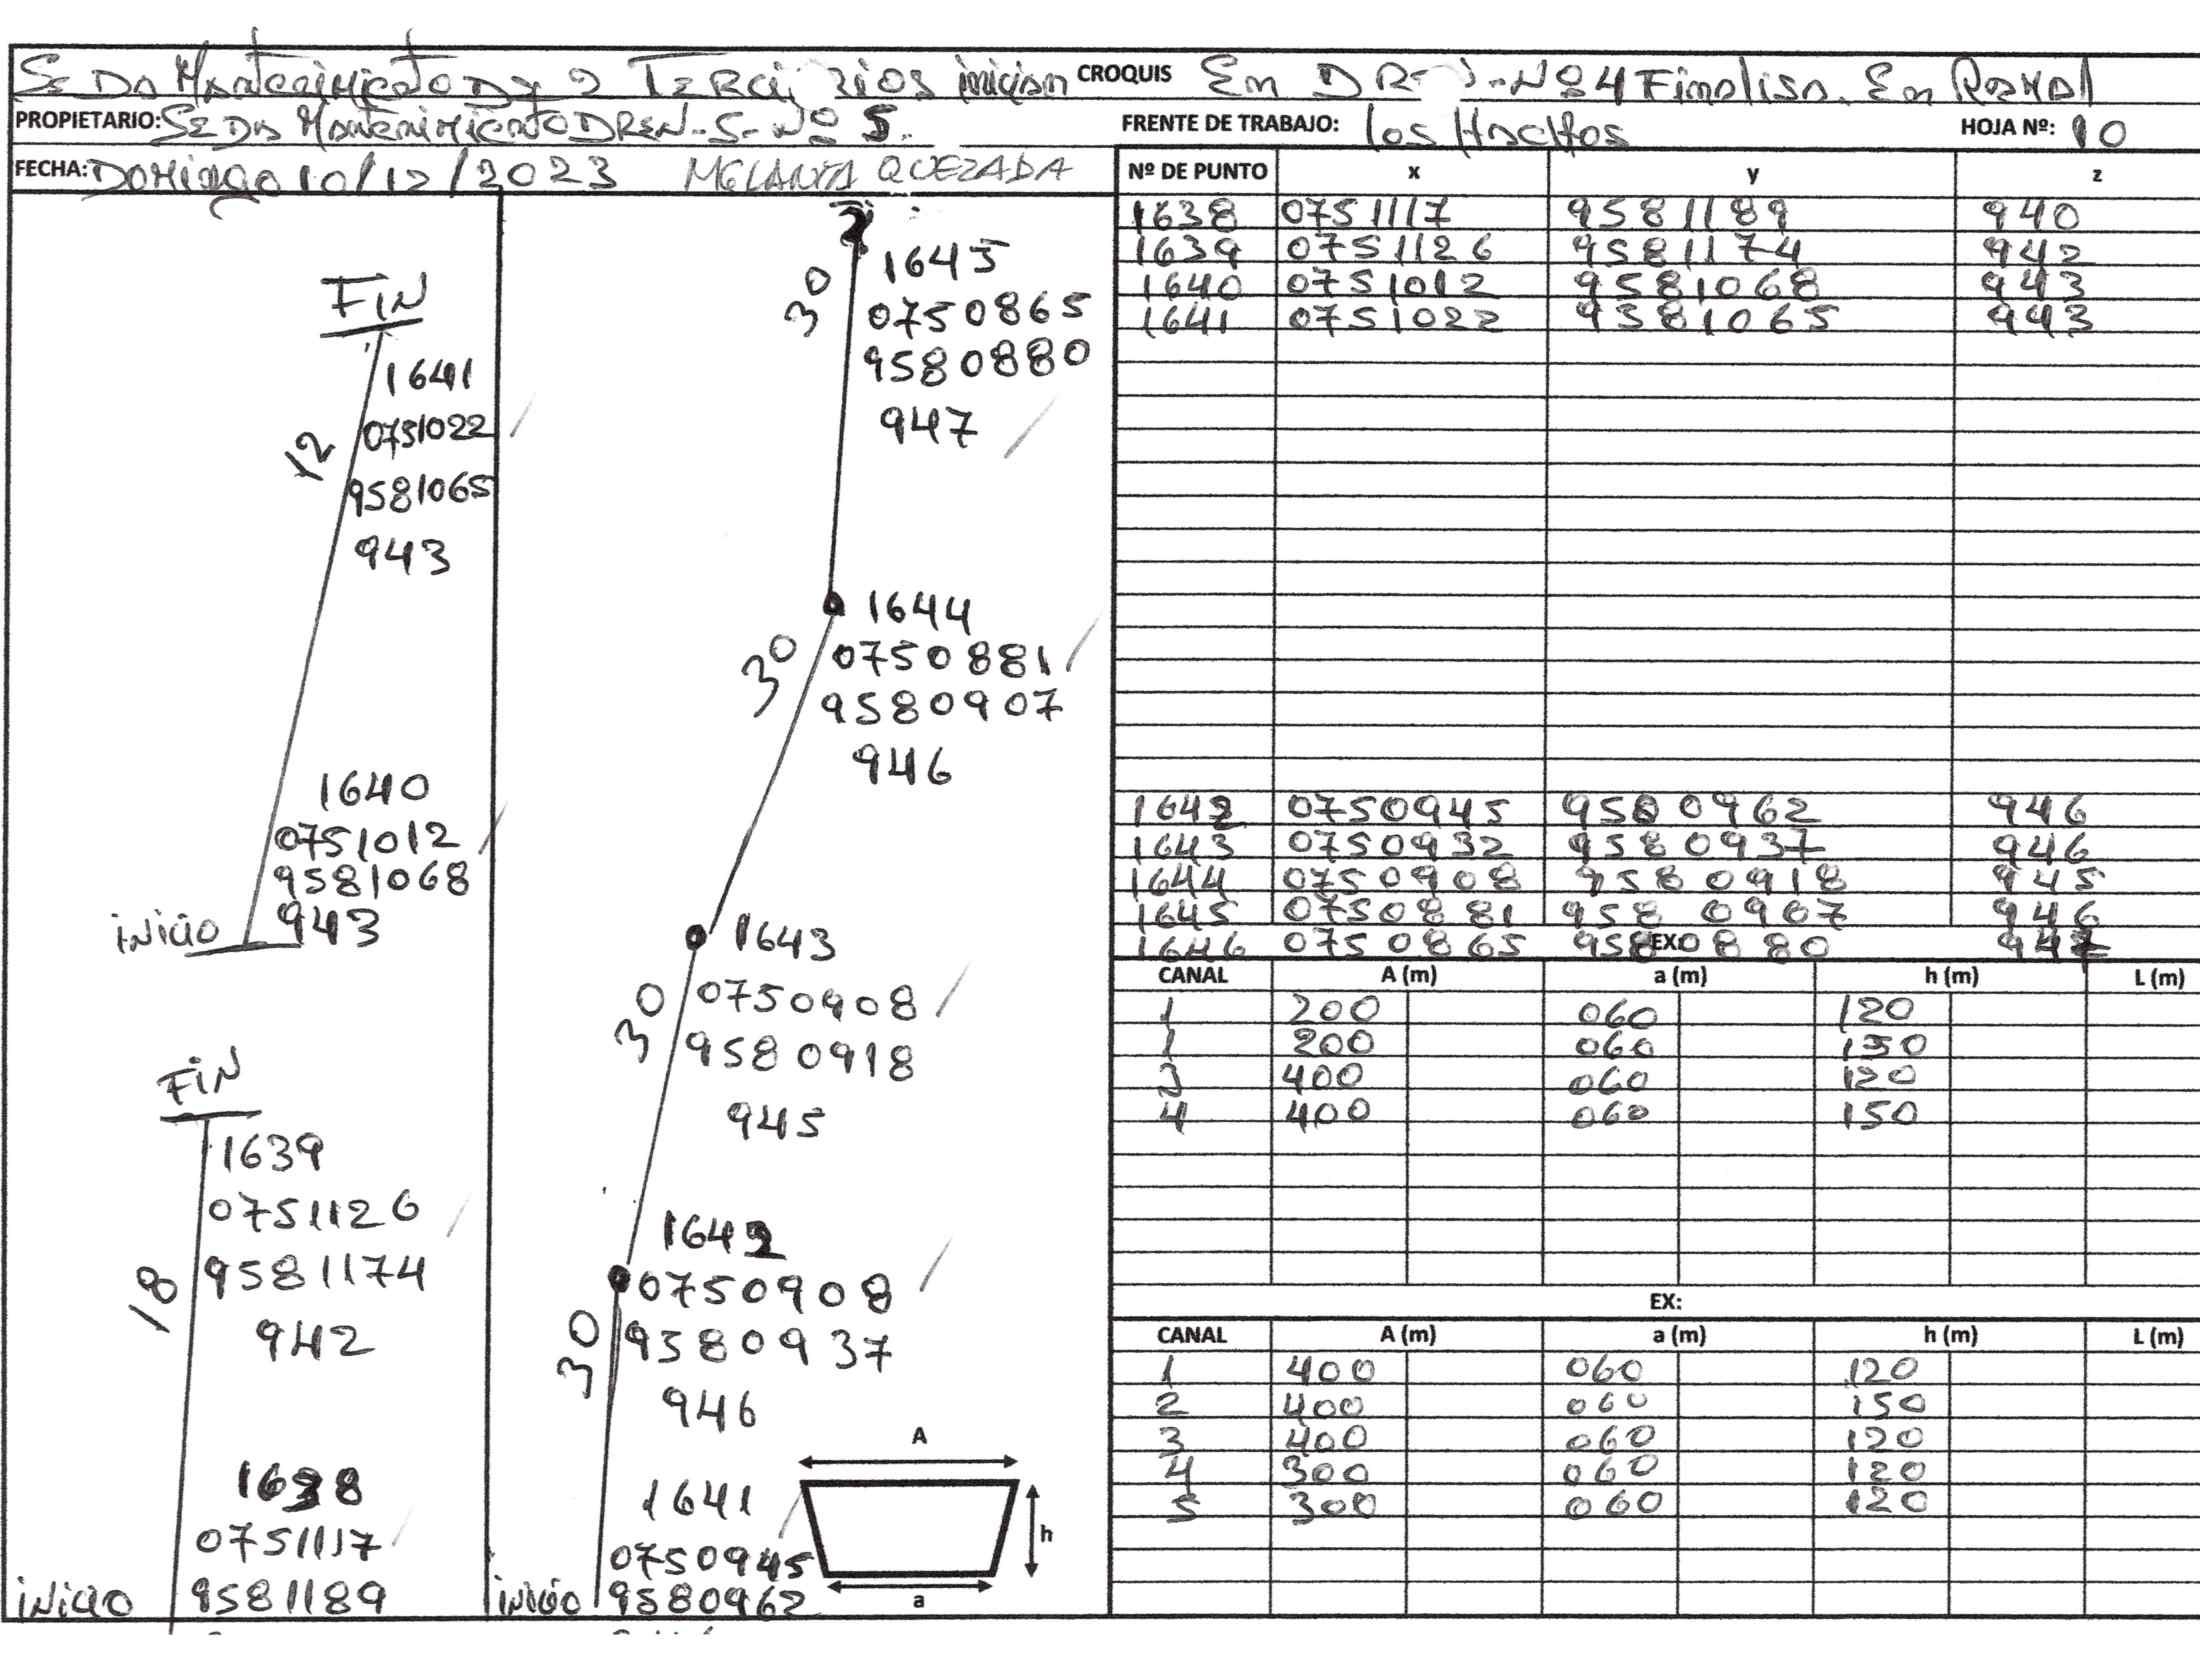 Se Da Mantenimiento D 2 Terciarios inician CROQUIS En DR Nº 4 Finalisa. En Ramal
PROPIETARIO: Se Da Mantenimiento DREN-S-Nº 5.
FRENTE DE TRABAJO: los Hachos HOJA Nº: 10
FECHA: DOMingo 10/12/2023 MELANIA QUEZADA
FIN
1641
0751022
12
9581065
943
1640
0751012
9581068
iNicio 943
FIN
1639
0751126
18
9581174
942
1638
0751117
iNicio 9581189
1645
30
0750865
9580880
947
1644
30
0750881
9580907
946
1643
30
0750908
9580918
945
1642
0750908
30
9580937
946
1641
0750945
iNicio 9580962
A
h
a
Nº DE PUNTO x y z
1638 0751117 9581189 940
1639 0751126 9581174 942
1640 0751012 9581068 943
1641 0751022 9581065 943
1642 0750945 9580962 946
1643 0750932 9580937 946
1644 0750908 9580918 945
1645 0750881 958 0907 946
1646 0750865 9580880 947
EX:
CANAL A (m) a (m) h (m) L (m)
1 200 060 120
1 200 060 150
3 400 060 120
4 400 060 150
EX:
CANAL A (m) a (m) h (m) L (m)
1 400 060 120
2 400 060 150
3 400 060 120
4 300 060 120
5 300 060 120